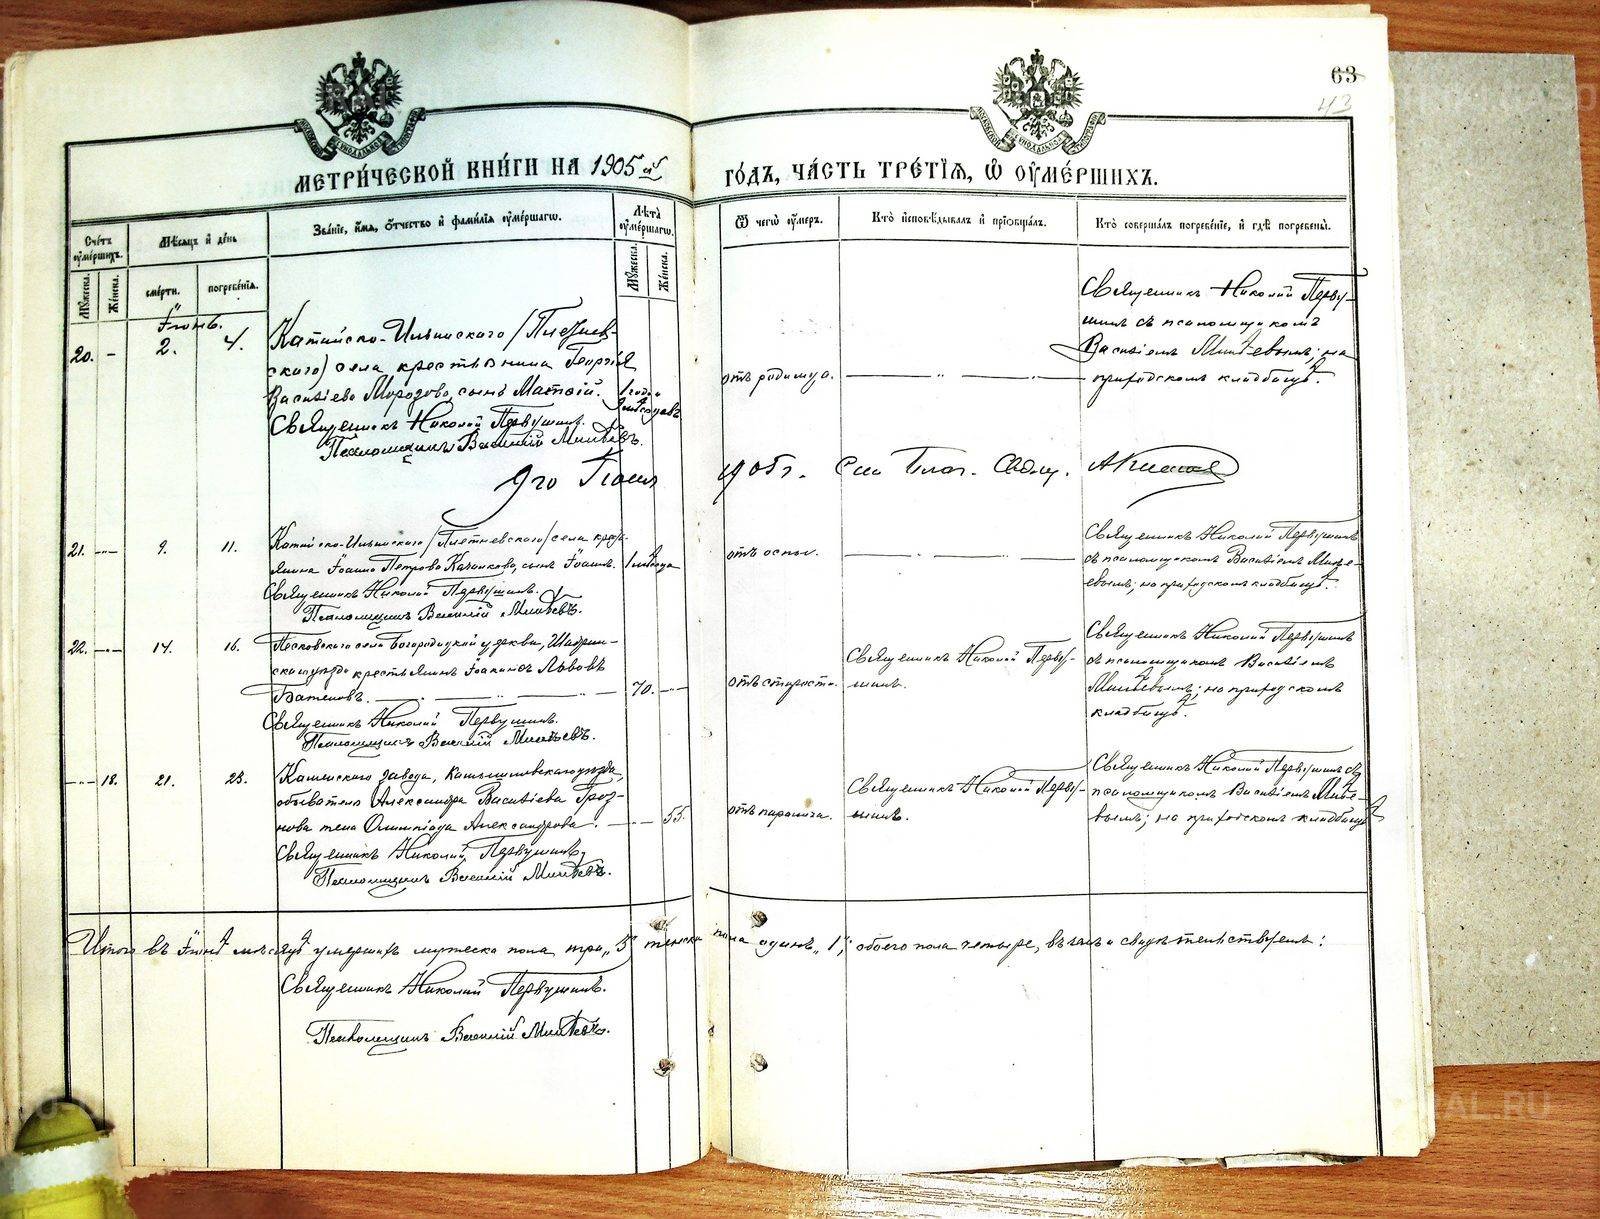 63
43
МЕТРИ́ЧЕСКОЙ КНИ́ГИ НА 1905 й
ГО́ДЪ, ЧА́СТЬ ТРЕ́ТІѦ, Ѡ ОУМЕ́РШИХЪ.
Сче́тъ оуме́ршихъ.
Мѣ́сѧцъ и де́нь
Зва́нїе, и́мѧ, о́тчество и фами́лїѧ оуме́ршагѡ.
Лѣ́та оуме́ршагѡ.
Ѿ чегѡ̀ оу́меръ.
Кто̀ и҆сповѣ́дывалъ и҆ прїѡбща́лъ.
Кто̀ соверша́лъ погребе́нїе, и҆ гдѣ̀ погребены̀.
Мꙋ́жеска.
Же́нска.
сме́рти.
погребе́нїѧ.
Мꙋ́жеска.
Же́нска.
Іюнь.
20. - 2. 4.
Катайско-Ильинскаго /Плетнев-
скаго/ села крестьянина Георгія
Василіева Морозова, сынъ Матѳій.
1 годъ и 9 мѣсяцевъ
Священникъ Николай Первушинъ.
Псаломщикъ Василій Минѣевъ.
отъ родимца.
Священникъ Николай Перву-
шинъ съ псаломщикомъ
Василіемъ Минѣевымъ; на
приходскомъ кладбищѣ.
9го Іюля
1905 г. Сіи Благ. Свящ.
21. 9. 11.
Катайско-Ильинскаго /Плетневскаго/ села кресть-
янина Іоанна Петрова Казанкова, сынъ Іоаннъ.
Священникъ Николай Первушинъ.
Псаломщикъ Василій Минѣевъ.
отъ оспы.
Священникъ Николай Первушинъ
съ псаломщикомъ Василіемъ Минѣ-
евымъ; на приходскомъ кладбищѣ.
22. 14. 16.
Песковскаго села Богородицкой церкви, Шадрин-
скаго уѣзда крестьянинъ Іоакимъ Львовъ
Баженовъ. 70.
Священникъ Николай Первушинъ.
Псаломщикъ Василій Минѣевъ.
отъ старости.
Священникъ Николай Перву-
шинъ.
Священникъ Николай Первушинъ
съ псаломщикомъ Василіемъ
Минѣевымъ; на приходскомъ
кладбищѣ.
18. 21. 23.
Каменскаго завода, Камышловскаго уѣзда,
обывателя Александра Василіева Гроз-
нова жена Олимпіада Александрова. 55.
Священникъ Николай Первушинъ.
Псаломщикъ Василій Минѣевъ.
отъ паралича.
Священникъ Николай Перву-
шинъ.
Священникъ Николай Первушинъ съ
псаломщикомъ Василіемъ Минѣе-
вымъ; на приходскомъ кладбищѣ
Итого въ Іюнѣ мѣсяцѣ умершихъ мужеска пола три „3“ женска пола одинъ „1“; обоего пола четыре, въ чемъ и свидѣтельствуемъ:
Священникъ Николай Первушинъ.
Псаломщикъ Василій Минѣевъ.